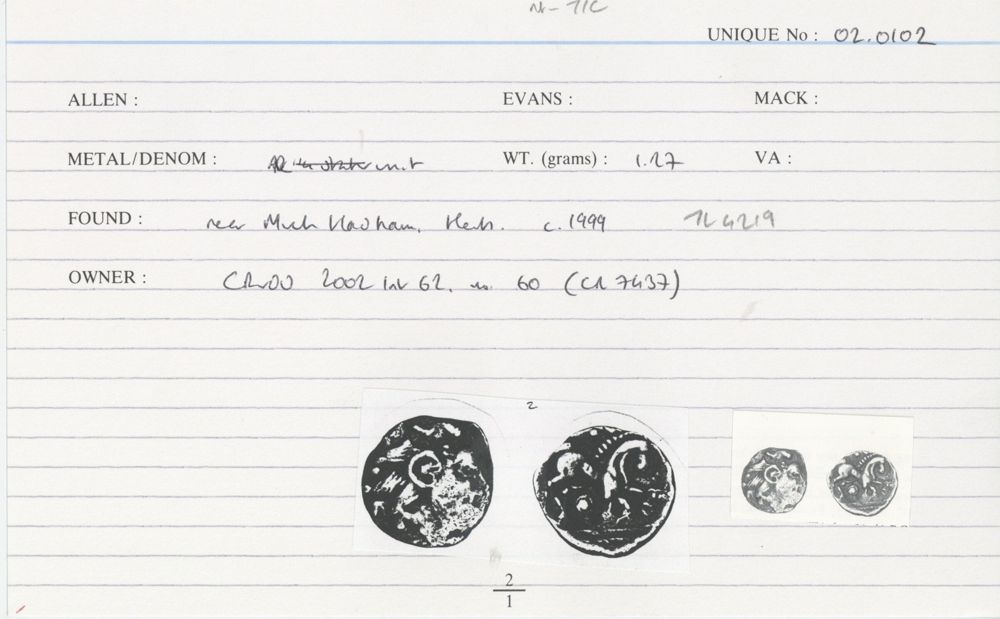 UNIQUE No : 02.0102
ALLEN : EVANS : MACK :
METAL/DENOM : AR unit WT. (grams) : 1.27 VA :
FOUND : near Much Hadham, Herts. c. 1999 TL 4219
OWNER : 2002 62. no. 60 (CR 7437)
2
2
1